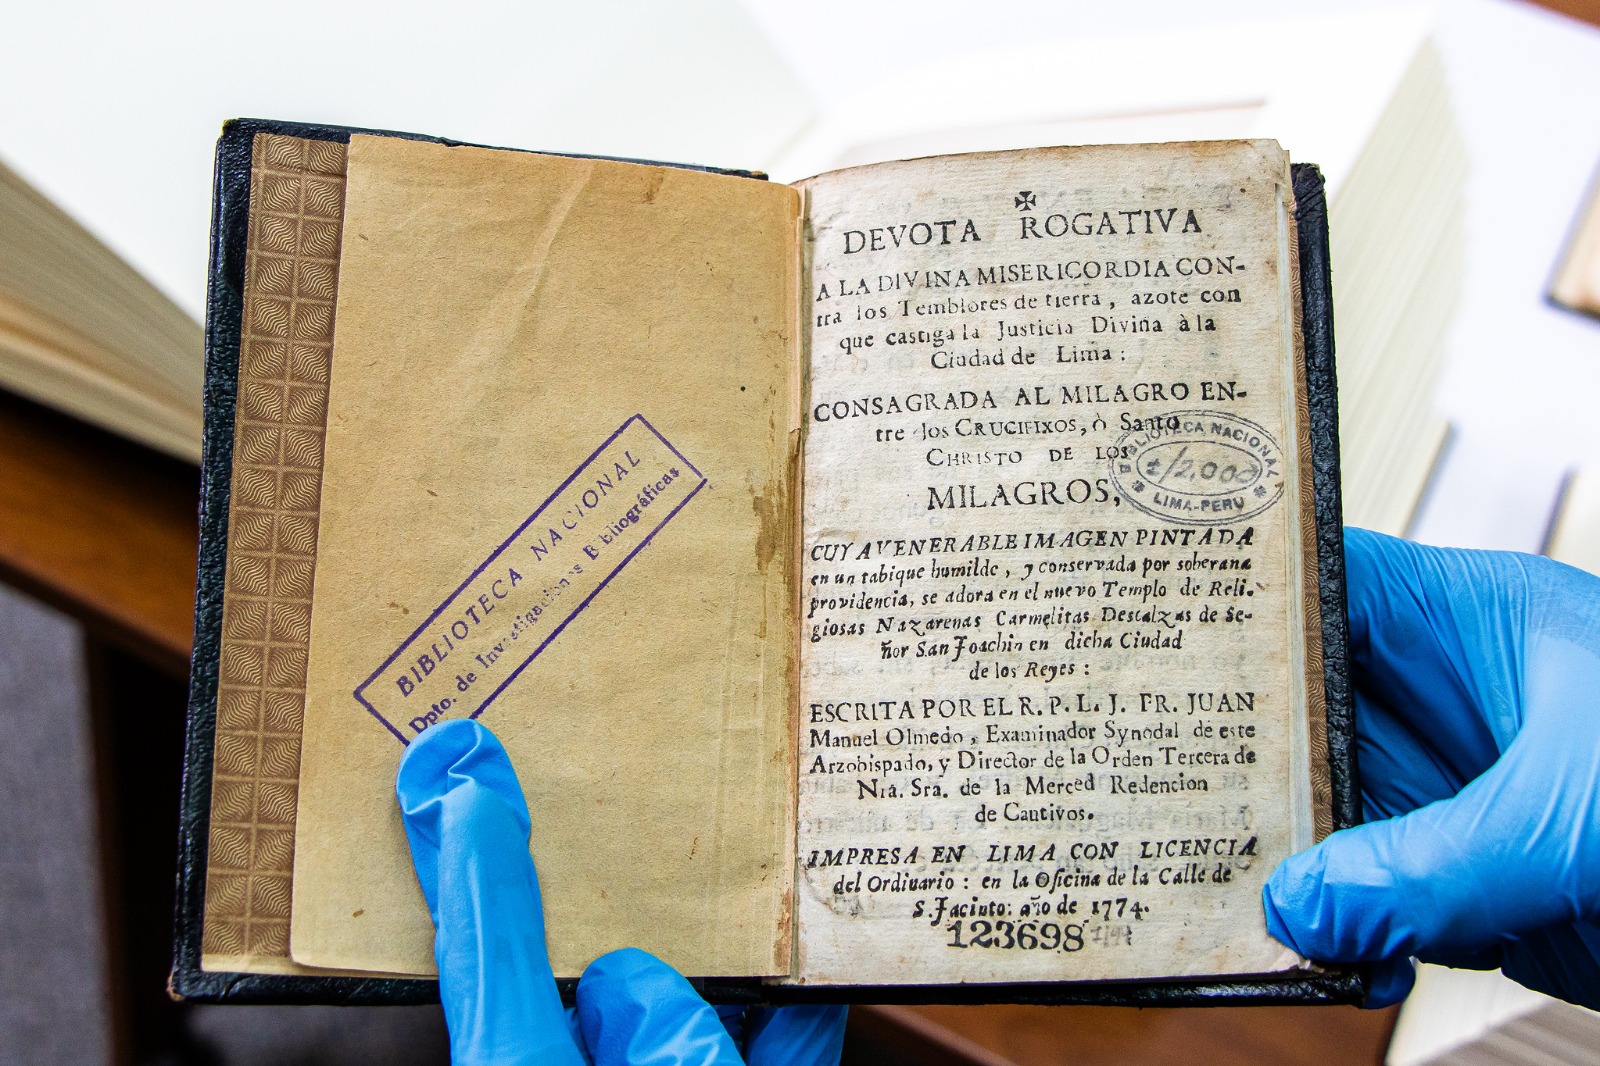 BIBLIOTECA NACIONAL
Dpto. de Investigaciones Bibliográficas
DEVOTA ROGATIVA
A LA DIVINA MISERICORDIA CON-
tra los Temblores de tierra, azote con
que castiga la Justicia Divina à la
Ciudad de Lima:
CONSAGRADA AL MILAGRO EN-
tre los CRUCIFIXOS, ò Santo
CHRISTO DE LOS
MILAGROS,
BIBLIOTECA NACIONAL
LIMA-PERU
CUYA VENERABLE IMAGEN PINTADA
en un tabique humilde, y conservada por soberana
providencia, se adora en el nuevo Templo de Reli-
giosas Nazarenas Carmelitas Descalzas de Se-
ñor San Joachin en dicha Ciudad
de los Reyes:
ESCRITA POR EL R. P. L. J. FR. JUAN
Manuel Olmedo, Examinador Synodal de este
Arzobispado, y Director de la Orden Tercera de
Nrá. Sra. de la Merced Redencion
de Cautivos.
IMPRESA EN LIMA CON LICENCIA
del Ordinario: en la Oficina de la Calle de
S. Jacinto: año de 1774.
123698